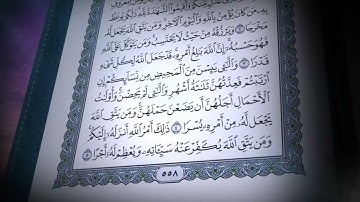 بِهِۦ مَن كَانَ يُؤْمِنُ بِٱللَّهِ وَٱلْيَوْمِ ٱلْءَاخِرِ وَمَن يَتَّقِ ٱللَّهَ يَجْعَل لَّهُۥ
مَخْرَجًا ٢ وَيَرْزُقْهُ مِنْ حَيْثُ لَا يَحْتَسِبُ وَمَن يَتَوَكَّلْ عَلَى ٱللَّهِ
فَهُوَ حَسْبُهُۥٓ إِنَّ ٱللَّهَ بَٰلِغُ أَمْرِهِۦ قَدْ جَعَلَ ٱللَّهُ لِكُلِّ شَىْءٍ
قَدْرًا ٣ وَٱلَّٰٓـِٔى يَئِسْنَ مِنَ ٱلْمَحِيضِ مِن نِّسَآئِكُمْ إِنِ
ٱرْتَبْتُمْ فَعِدَّتُهُنَّ ثَلَٰثَةُ أَشْهُرٍ وَٱلَّٰٓـِٔى لَمْ يَحِضْنَ وَأُو۟لَٰتُ
ٱلْأَحْمَالِ أَجَلُهُنَّ أَن يَضَعْنَ حَمْلَهُنَّ وَمَن يَتَّقِ ٱللَّهَ
يَجْعَل لَّهُۥ مِنْ أَمْرِهِۦ يُسْرًا ٤ ذَٰلِكَ أَمْرُ ٱللَّهِ أَنزَلَهُۥٓ إِلَيْكُمْ
وَمَن يَتَّقِ ٱللَّهَ يُكَفِّرْ عَنْهُ سَيِّـَٔاتِهِۦ وَيُعْظِمْ لَهُۥٓ أَجْرًا ٥
٥٥٨